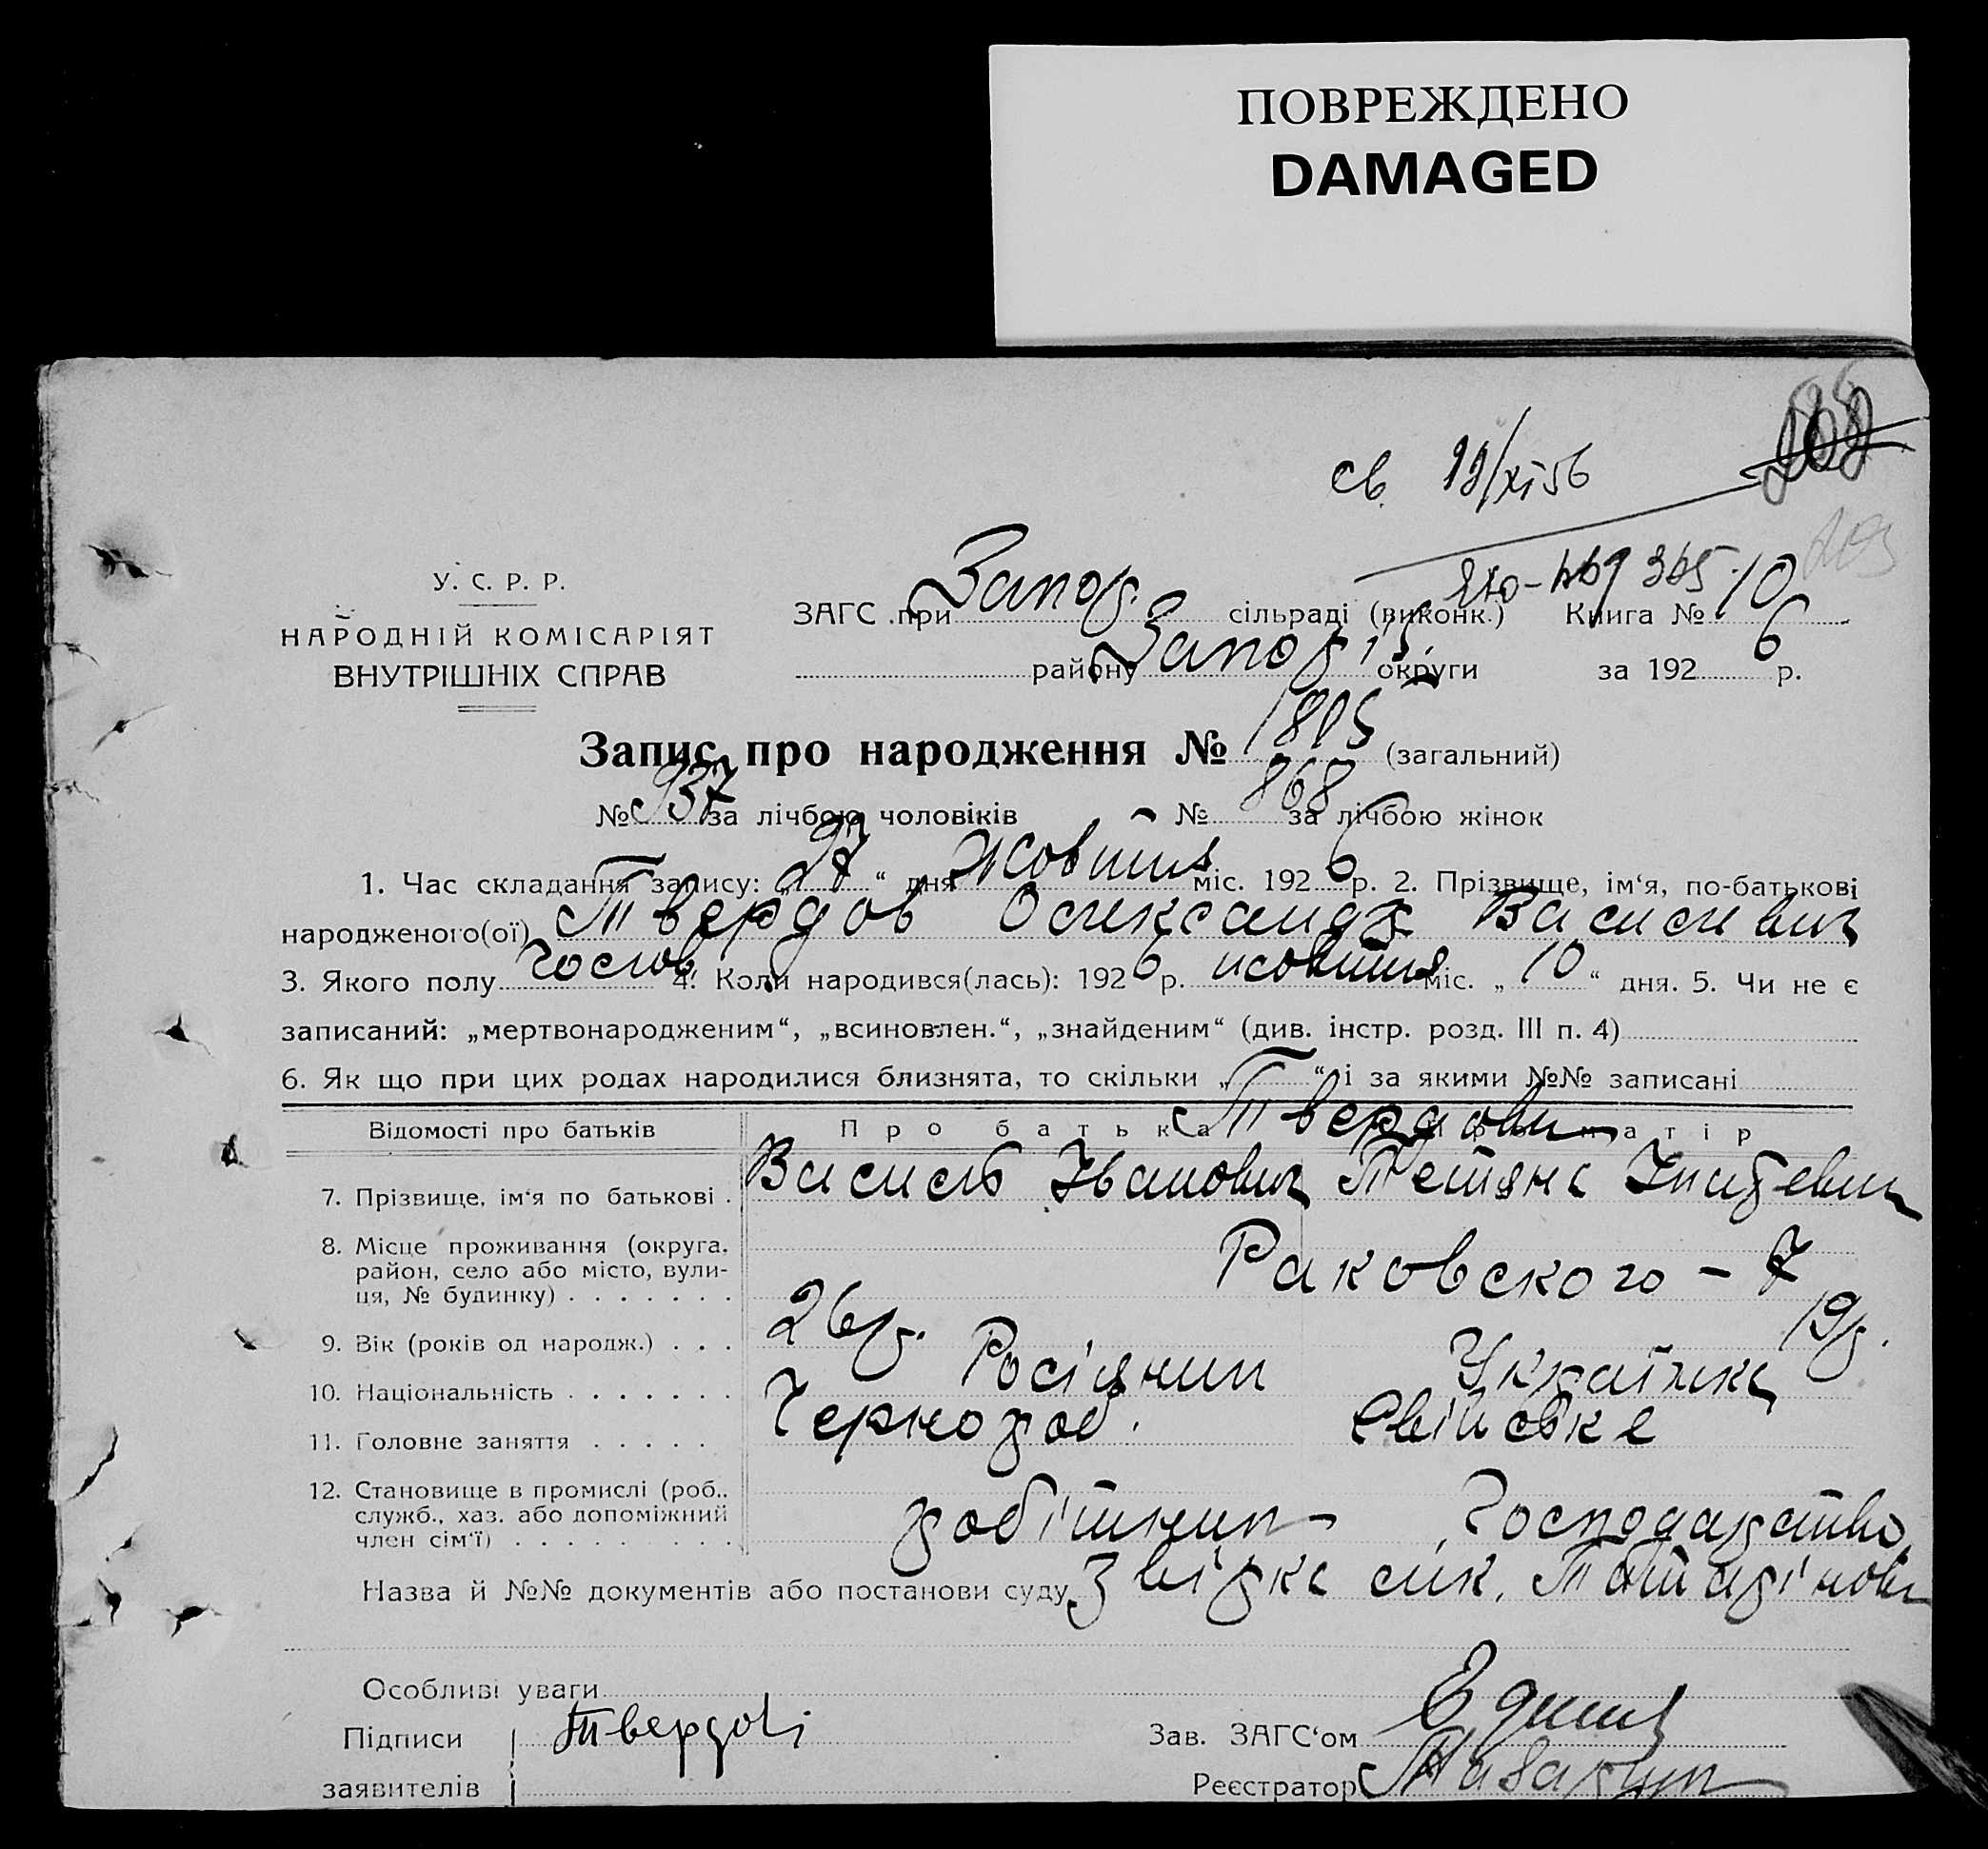 ПОВРЕЖДЕНО
DAMAGED
св. 19/XI 56
У. С. Р. Р.
НАРОДНІЙ КОМІСАРІЯТ
ВНУТРІШНІХ СПРАВ
ЗАГС при Запор. сільраді (виконк.) Книга № 10
району Запоріз. округи за 1926 р.
Запис про народження № 1805 (загальний)
№ 937 за лічбою чоловіків № 868 за лічбою жінок
1. Час складання запису: „27“ дня жовтня міс. 1926 р. 2. Прізвище, ім‘я, по-батькові
народженого(ої) Твердов Олександр Василевич
3. Якого полу Чолов. 4. Коли народився(лась): 1926 р. жовтня міс. „10“ дня. 5. Чи не є
записаний: „мертвонародженим“, „всиновлен.“, „знайденим“ (див. інстр. розд. III п. 4)
6. Як що при цих родах народилися близнята, то скільки „ “ і за якими №№ записані
Відомості про батьків Про батька Про матір
Твердови
7. Прізвище, ім‘я по батькові . Василь Іванович Тетяна
8. Місце проживання (округа,
район, село або місто, вули-
ця, № будинку) . . . . . . . Раковского – 7
9. Вік (років од народж.) . . . 26 р. 19 р.
10. Національність . . . . . . . Росіянин Українка
11. Головне заняття . . . . . Чернороб. Свійське
12. Становище в промислі (роб.,
служб., хаз. або допоміжний
член сім‘ї) . . . . . . . . . робітник – Господарство
Назва й №№ документів або постанови суду
Особливі уваги
Підписи Твердові Зав. ЗАГС‘ом
заявителів Реєстратор